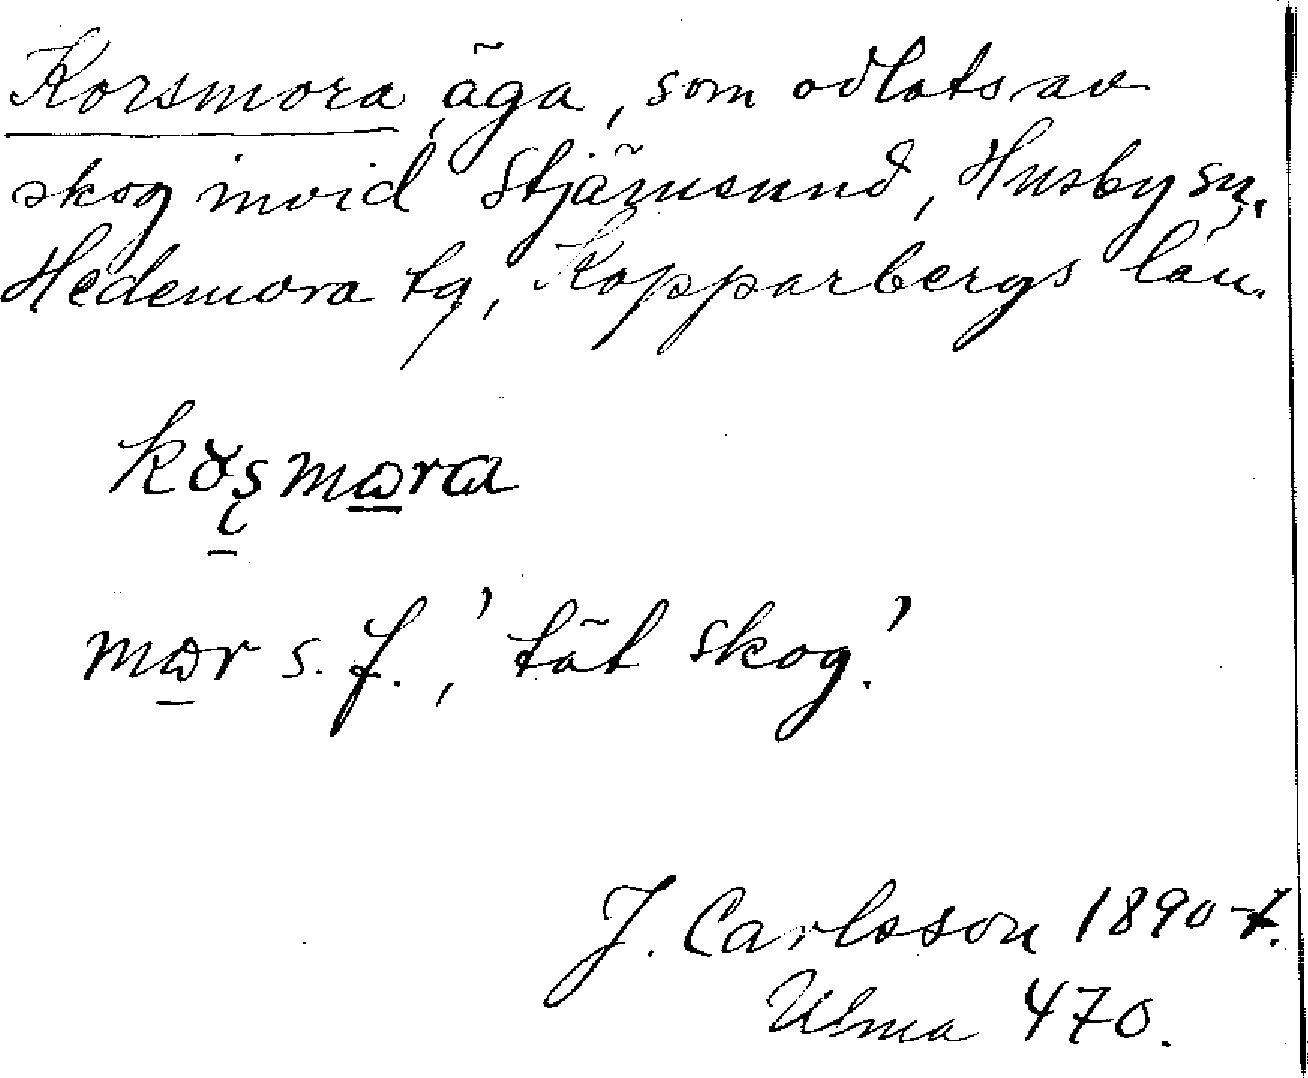 Korsmora, äga, som odlats av
skog invid Stjärnsund, Husby sn.
Hedemora tg, Kopparbergs län.
mɷr s. f., 'tät skog.'
J. Carlsson 1890-t.
Ulma 470.